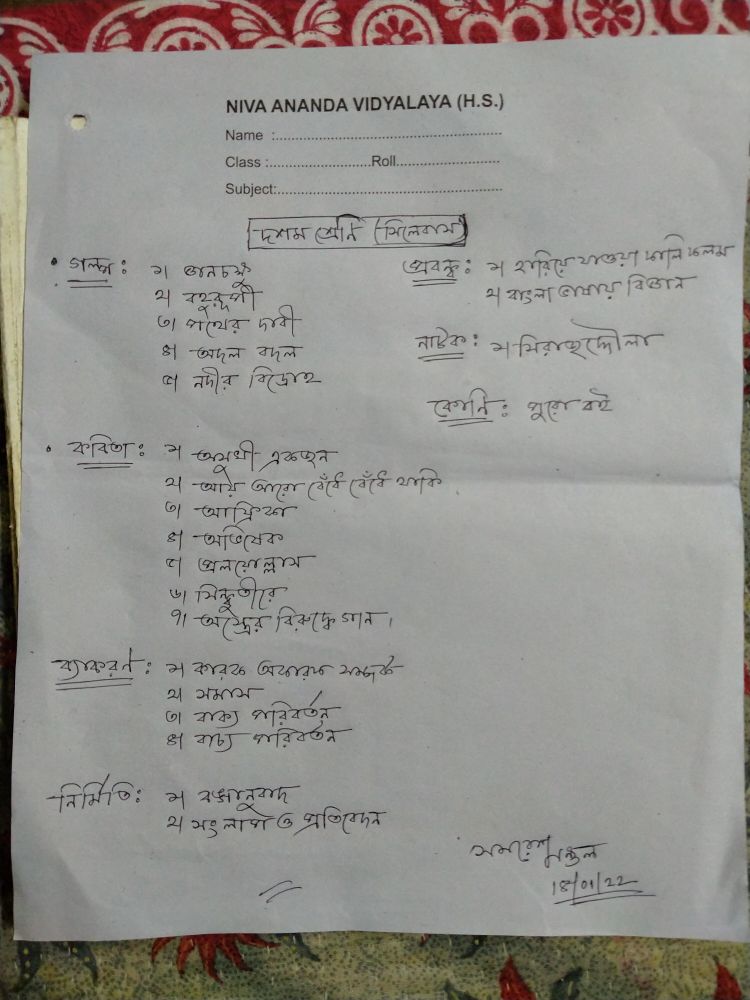 NIVA ANANDA VIDYALAYA (H.S.)
Name :..........................................................
Class :..........................Roll..........................
Subject:.........................................................
দশম শ্রেণি (সিলেবাস)
• গল্প : ১। জ্ঞানচক্ষু
২। বহুরূপী
৩। পথের দাবী
৪। অদল বদল
৫। নদীর বিদ্রোহ
প্রবন্ধ : ১। হারিয়ে যাওয়া কালি কলম
২। বাংলা ভাষায় বিজ্ঞান
নাটক : ১। সিরাজদ্দৌলা
কোনি : পুরো বই
• কবিতা : ১। অসুখী একজন
২। আয় আরো বেঁধে বেঁধে থাকি
৩। আফ্রিকা
৪। অভিষেক
৫। প্রলয়োল্লাস
৬। সিন্ধুতীরে
৭। অস্ত্রের বিরুদ্ধে গান।
ব্যাকরণ : ১। কারক অকারক সম্পর্ক
২। সমাস
৩। বাক্য পরিবর্তন
৪। বাচ্য পরিবর্তন
নির্মিতি : ১। বঙ্গানুবাদ
২। সংলাপ ও প্রতিবেদন
মণ্ডল
১৪/০১/২২